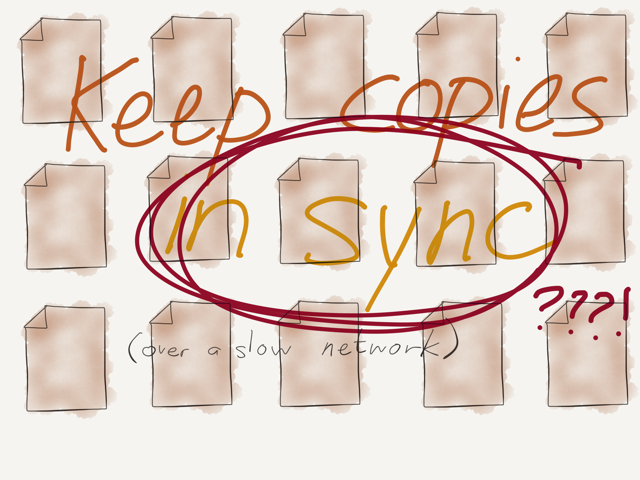 Keep copies
in sync
???!
(over a slow network)